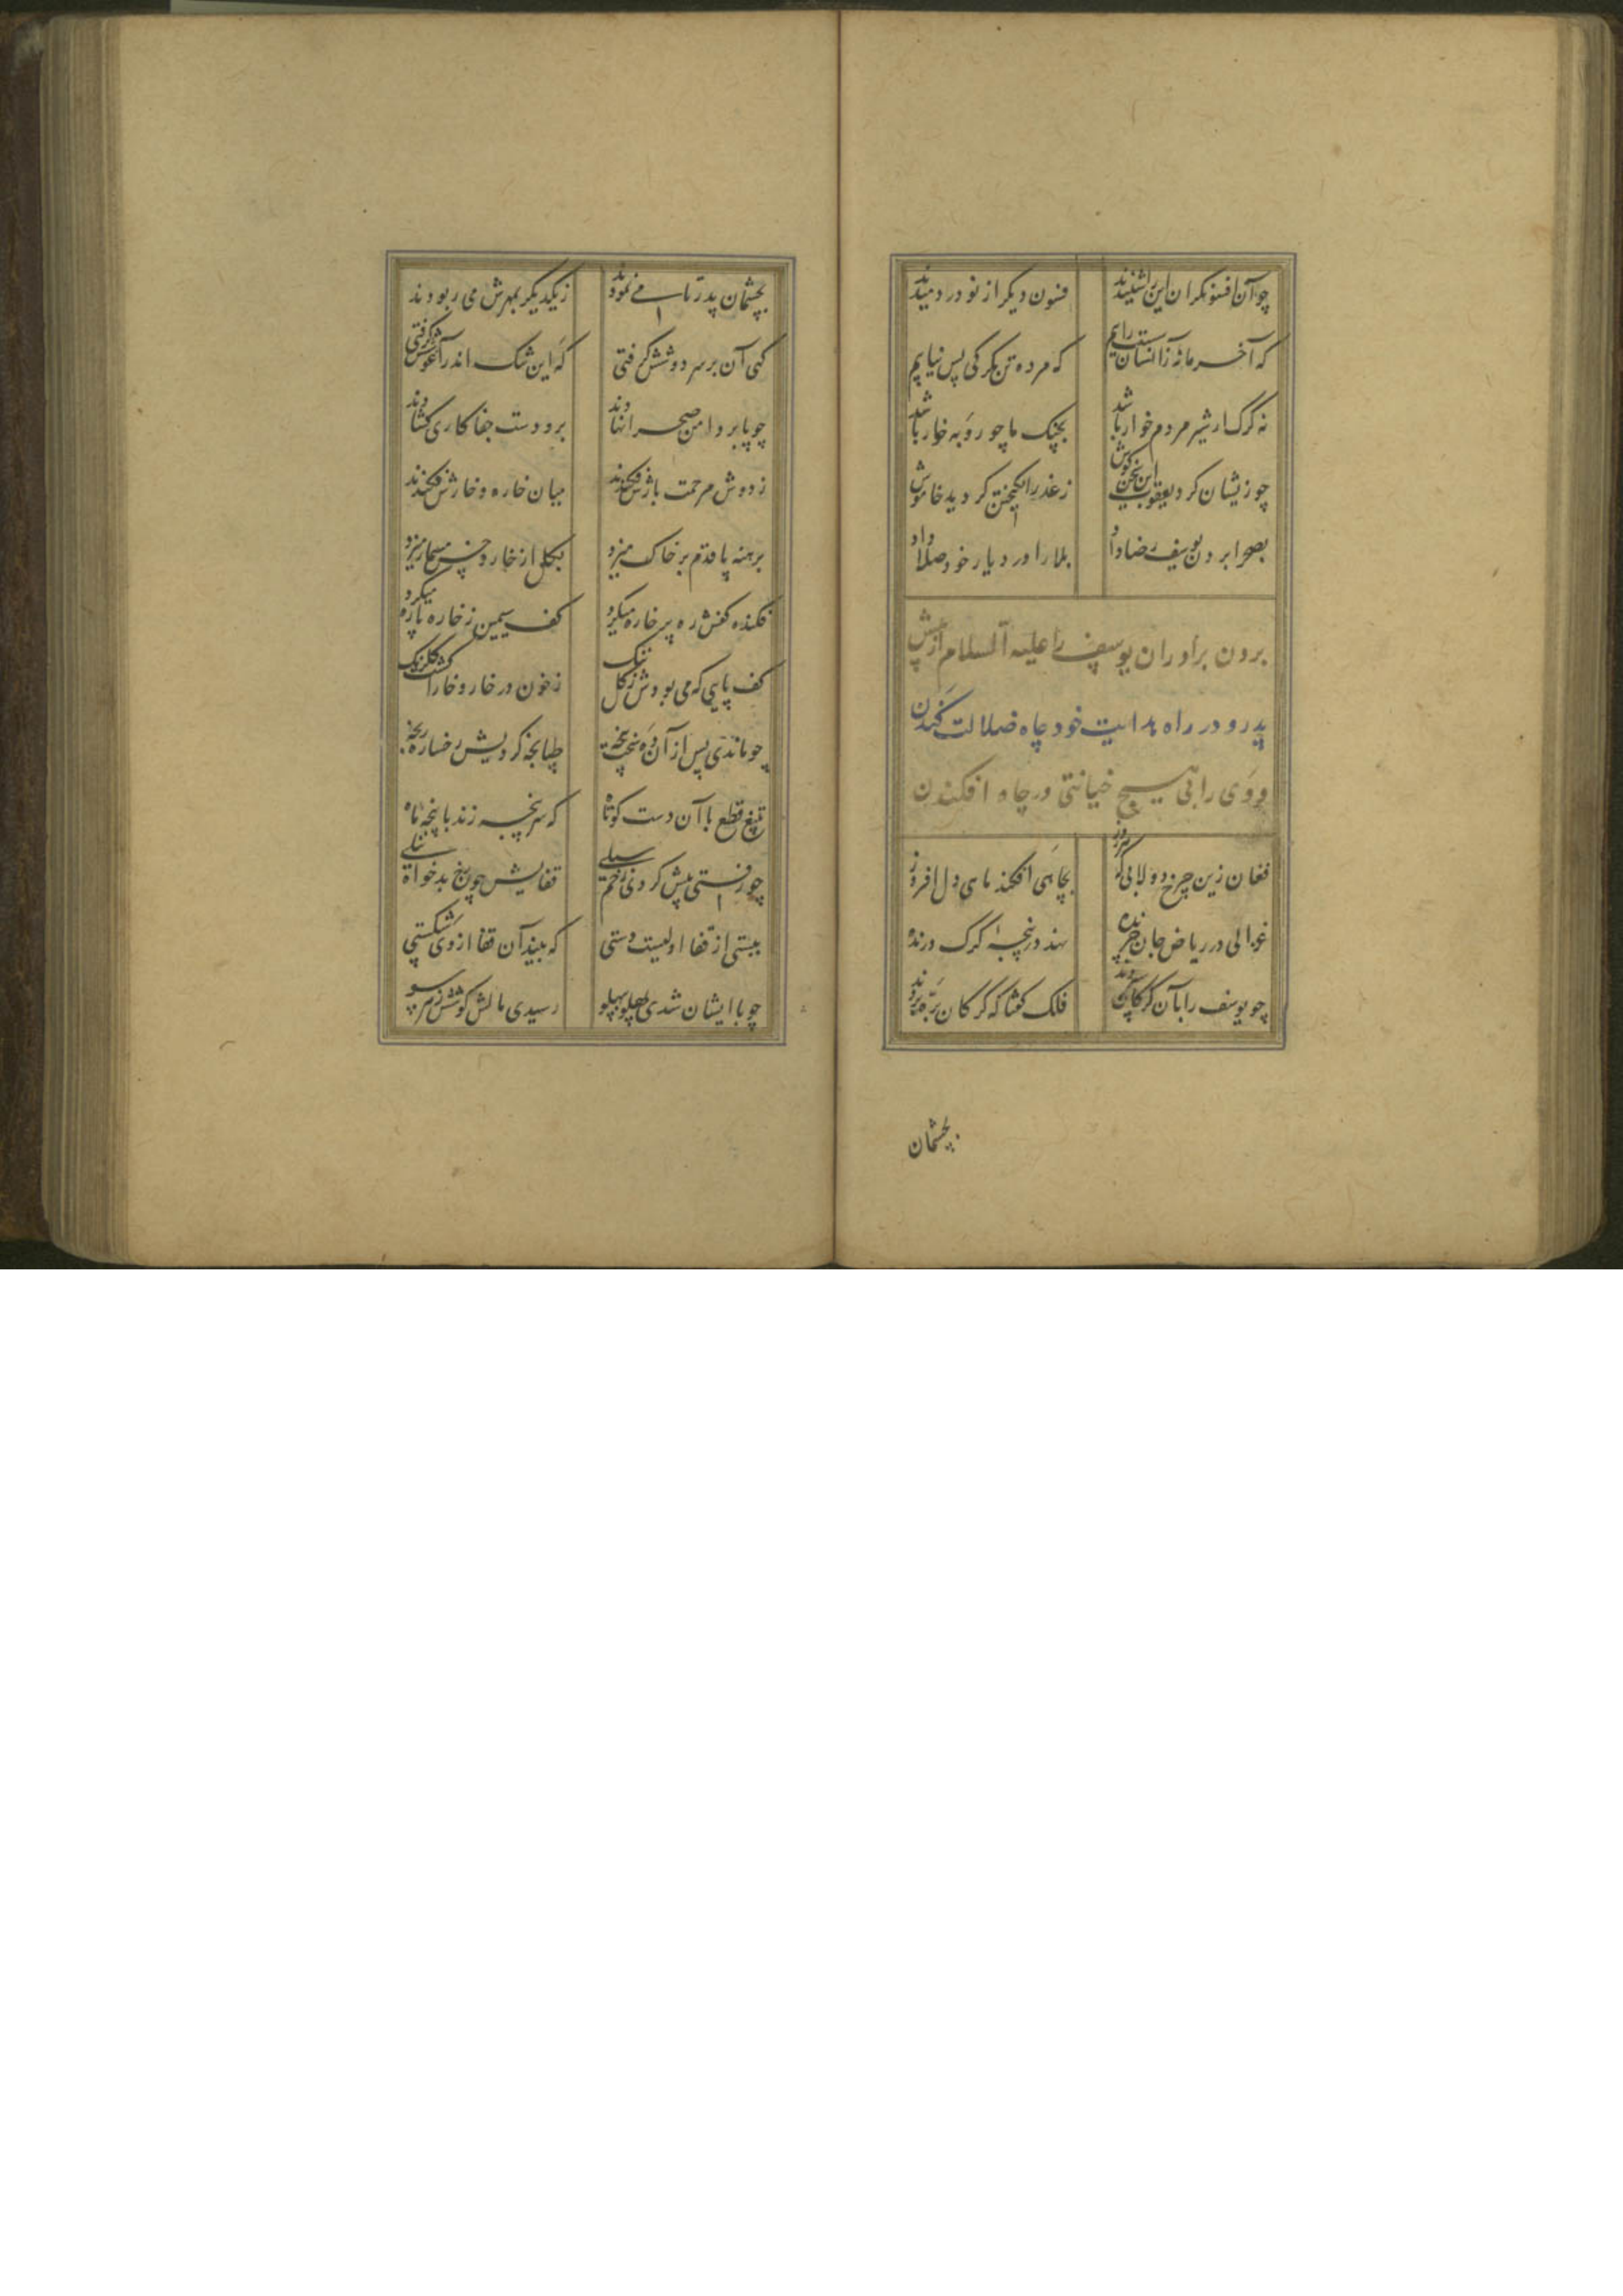 چو آن افسونگران این را شنیدند فسون دیگر از نو در دمیدند
که آخر ما نه زانسان سست رایم که مرده تن بگرگی پس نیایم
نه گرگ ار شیر مردم خوار باشد بچنگ ما چو روبه خوار باشد
چو زیشان کرد یعقوب این سخن گوش ز عذر انگیختن گردید خاموش
بصحرا بردن یوسف رضا داد بلا را در دیار خود صلا داد
بردن برادران یوسف را علیه السلام از پیش
پدر و در راه هدایت خود چاه ضلالت کندن
و وی را بی هیچ خیانتی در چاه افکندن
فغان زین چرخ دولابی که هر روز بچاهی افکند ماهی دل افروز
غزالی در ریاض جان چرنده نهد در پنجهٔ گرگ درنده
چو یوسف را بآن گرگان سپردند فلک گفتا که گرگان بره بردند
بچشمان
بچشمان پدر تا می نمودند ز یکدیگر بمهرش می ربودند
گهی آن بر سر دوشش گرفتی گه این تنگ اندر آغوشش گرفتی
چو پا بر دامن صحرا نهادند برو دست جفاکاری گشادند
ز دوش مرحمت بارش فکندند میان خاره و خارش فکندند
برهنه پا قدم بر خاک میزد بگل از خار و خس مسمار میزد
فکنده کفش ره بر خاره میکرد کف سیمین ز خاره پاره میکرد
کف پایی که می بودش ز گل تنگ ز خون در خار و خارا گشت گلرنگ
چو ماندی پس از آن ده سخت پنجه طپانجه کردیش رخساره رنجه
بتیغ قطع با آن دست کوتاه که سرپنجه زند با پنجه ماه
چو رفتی پیش کردی زخم سیلی قفایش چون رخ بدخواه نیلی
ببستی از قفا اولیست دستی که بیند آن قفا از وی شکستی
چو با ایشان شدی پهلو بپهلو رسیدی مالش گوشش ز هر سو